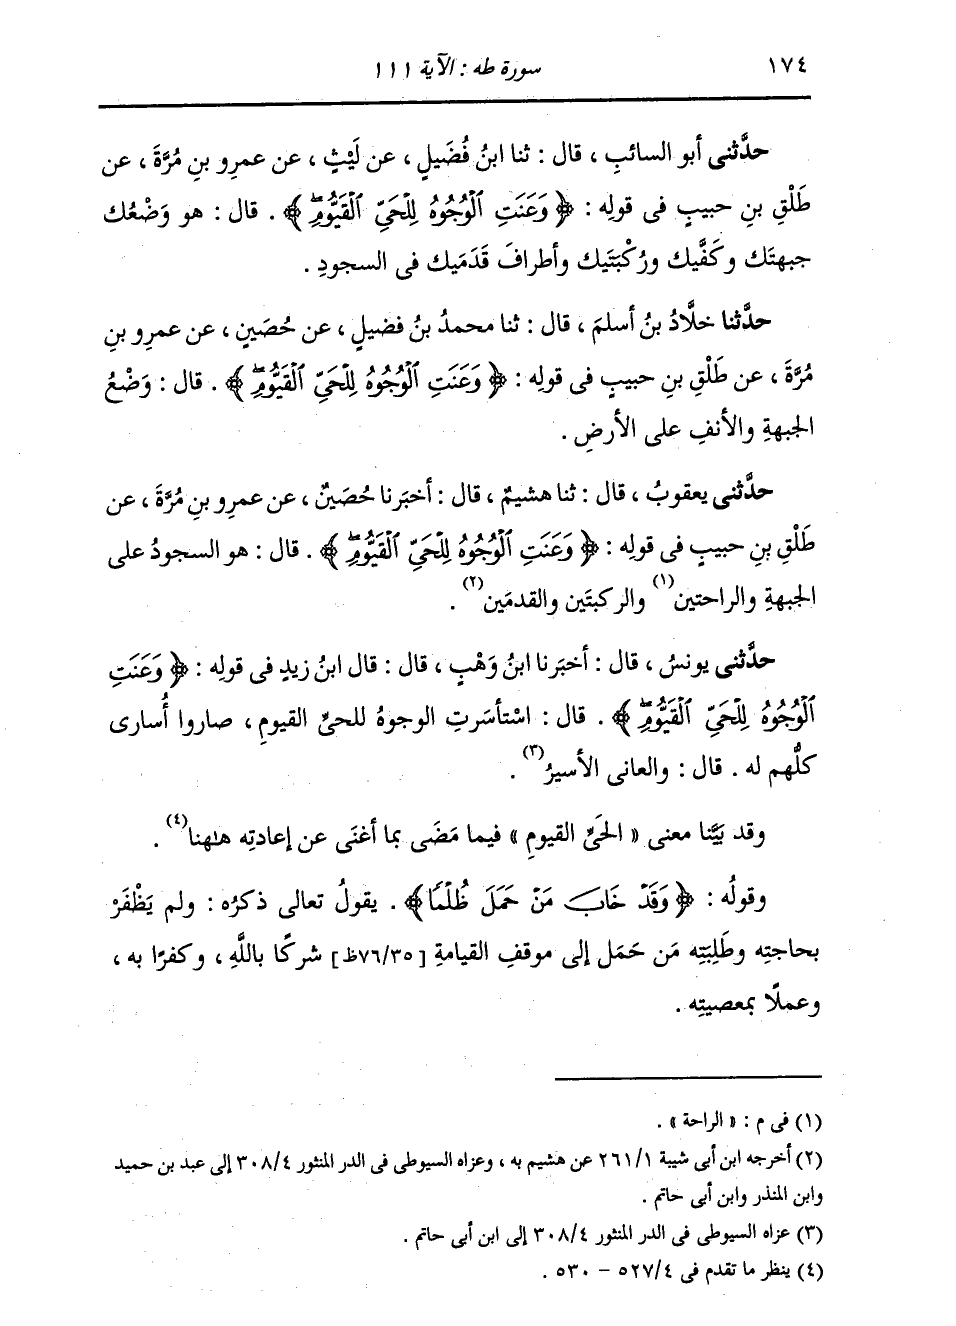 ١٧٤ سورة طه : الآية ١١١
حدَّثنى أبو السائبِ ، قال : ثنا ابنُ فُضَيلٍ ، عن لَيْثٍ ، عن عمرِو بنِ مُرَّةَ ، عن
طَلْقِ بنِ حبيبٍ فى قولِه : ﴿ وَعَنَتِ ٱلْوُجُوهُ لِلْحَيِّ ٱلْقَيُّومِۖ ﴾ . قال : هو وَضْعُك
جبهتَك وكَفَّيك ورُكْبَتَيك وأطرافَ قَدَمَيك فى السجودِ .
حدَّثنا خلَّادُ بنُ أسلمَ ، قال : ثنا محمدُ بنُ فضيلٍ ، عن حُصَينٍ ، عن عمرِو بنِ
مُرَّةَ ، عن طَلْقِ بنِ حبيبٍ فى قولِه : ﴿ وَعَنَتِ ٱلْوُجُوهُ لِلْحَيِّ ٱلْقَيُّومِۖ ﴾ . قال : وَضْعُ
الجبهةِ والأنفِ على الأرضِ .
حدَّثنى يعقوبُ ، قال : ثنا هشيمٌ ، قال : أخبَرنا حُصَينٌ ، عن عمرِو بنِ مُرَّةَ ، عن
طَلْقِ بنِ حبيبٍ فى قولِه : ﴿ وَعَنَتِ ٱلْوُجُوهُ لِلْحَيِّ ٱلْقَيُّومِۖ ﴾ . قال : هو السجودُ على
الجبهةِ والراحتين(١) والركبتَين والقدمَين(٢) .
حدَّثنى يونسُ ، قال : أخبَرنا ابنُ وَهْبٍ ، قال : قال ابنُ زيدٍ فى قولِه : ﴿ وَعَنَتِ
ٱلْوُجُوهُ لِلْحَيِّ ٱلْقَيُّومِۖ ﴾ . قال : اسْتأسَرتِ الوجوهُ للحىِّ القيومِ ، صاروا أُسارى
كلُّهم له . قال : والعانى الأسيرُ(٣) .
وقد بَيَّنا معنى « الحَىِّ القيومِ » فيما مَضَى بما أغنَى عن إعادتِه هٰهنا(٤) .
وقولُه : ﴿ وَقَدْ خَابَ مَنْ حَمَلَ ظُلْمًا ﴾ . يقولُ تعالى ذكرُه : ولم يَظْفَرْ
بحاجتِه وطَلِبَتِه مَن حَمَل إلى موقفِ القيامةِ [٧٦/٣٥ظ] شركًا باللَّهِ ، وكفرًا به ،
وعملًا بمعصيتِه .
(١) فى م : « الراحة » .
(٢) أخرجه ابن أبى شيبة ٢٦١/١ عن هشيم به ، وعزاه السيوطى فى الدر المنثور ٣٠٨/٤ إلى عبد بن حميد
وابن المنذر وابن أبى حاتم .
(٣) عزاه السيوطى فى الدر المنثور ٣٠٨/٤ إلى ابن أبى حاتم .
(٤) ينظر ما تقدم فى ٥٢٧/٤ – ٥٣٠ .